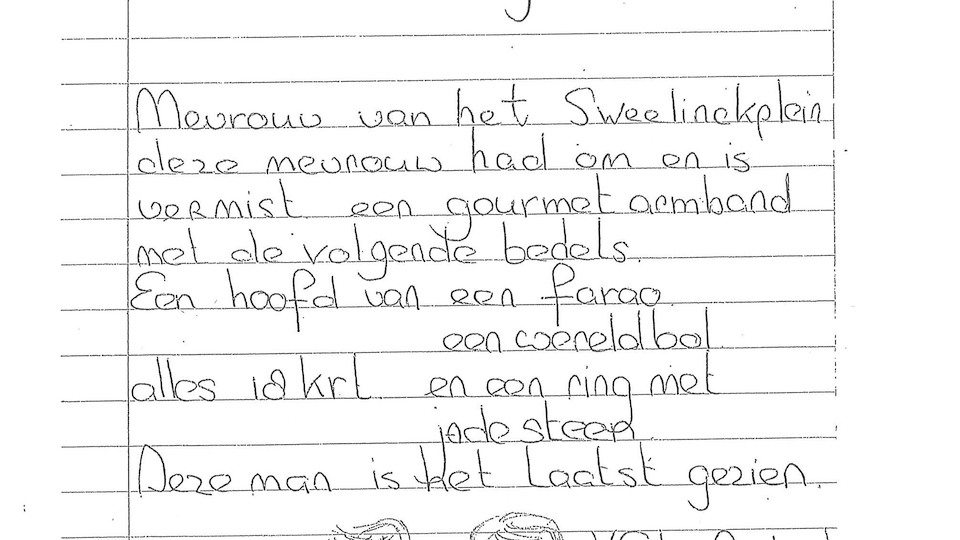 Mevrouw van het Sweelinckplein
deze mevrouw had om en is
vermist een gourmet armband
met de volgende bedels.
Een hoofd van een farao
een wereldbol
alles 18 krt en een ring met
jade steen
Deze man is het Laatst gezien.